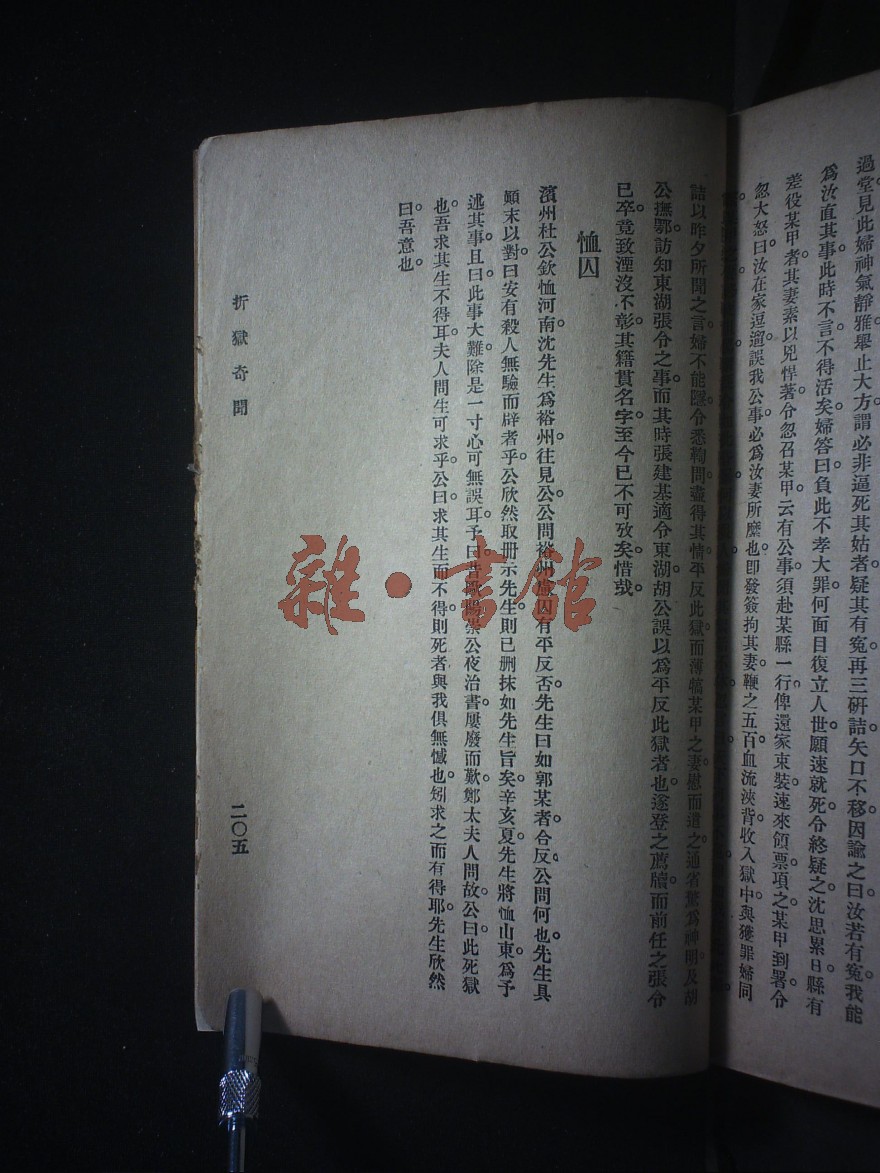 過堂見此婦神氣靜雅舉止大方謂必非逼死其姑者疑其有寃再三研詰矢口不移因諭之曰汝若有寃我能
爲汝直其事此時不言不得活矣婦答曰負此不孝大罪何面目復立人世願速就死令終疑之沈思累日縣有
差役某甲者其妻素以兇悍著令忽召某甲云有公事須赴某縣一行俾還家束裝速來領票項之某甲到署令
忽大怒曰汝在家逗遛誤我公事必爲汝妻所縻也卽發簽拘其妻鞭之五百血流浹背收入獄中與獲罪婦同
詰以昨夕所聞之言婦不能隱令悉鞫問盡得其情平反此獄而薄犒某甲之妻慰而遣之通省驚爲神明及胡
公撫鄂訪知東湖張令之事而其時張建基適令東湖胡公誤以爲平反此獄者也遂登之薦牘而前任之張令
已卒竟致湮沒不彰其籍貫名字至今已不可攷矣惜哉
恤囚
濱州杜公欽恤河南沈先生爲裕州往見公公問裕州囚有平反否先生曰如郭某者合反公問何也先生具
顚末以對曰安有殺人無驗而辟者乎公欣然取册示先生則已删抹如先生旨矣辛亥夏先生將恤山東爲予
述其事且曰此事大難除是一寸心可無誤耳予曰昔歐陽崇公夜治書屢廢而歎鄭太夫人問故公曰此死獄
也吾求其生不得耳夫人問生可求乎公曰求其生而不得則死者與我俱無憾也矧求之而有得耶先生欣然
曰吾意也
折獄奇聞
二〇五
雜·書館